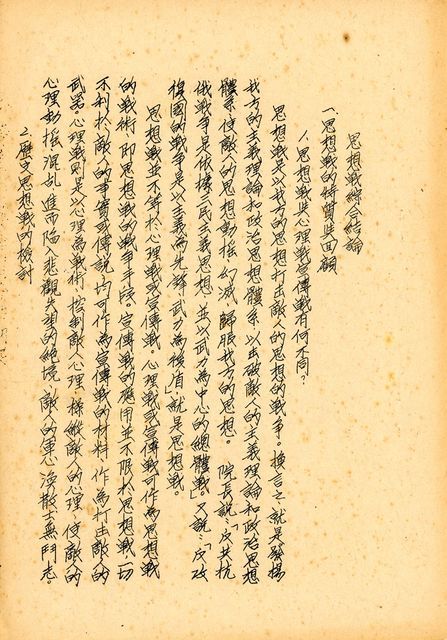 思想戰綜合結論
一、思想戰的特質與面額
1.思想戰與心理戰宣傳戰有何不同?
思想戰是以我方的思想打击敵人的思想的戰爭。換言之就是發揚
我方的主義理論和政治思想體系以击破敵人的主義理論和政治思想
體系使敵人的思想動摇幻滅,歸服我方的思想。 院長説:「反共抗
俄戰爭是依據三民主義思想,並以武力為中心的總體戰」。又説:「反攻
復國的戰爭是以主義為先鋒,武力為後盾」就是思想戰。
思想戰並不等於心理戰或宣傳戰。心理戰或宣傳戰可作為思想戰
的戰術,即思想戰的戰爭手段。宣傳戰的應用並不限於思想戰一切
不利於敵人的事實或傳説,均可作為宣傳戰的材料,作為打击敵人的
武器。心理戰則是以心理為戰術,控制敵人心理,操縱敵人的心理,使敵人的
心理動摇混乱,進而陥入悲觀失望的絶境,敵人的軍心涣散士無鬥志。
2.歷史思想戰的檢討